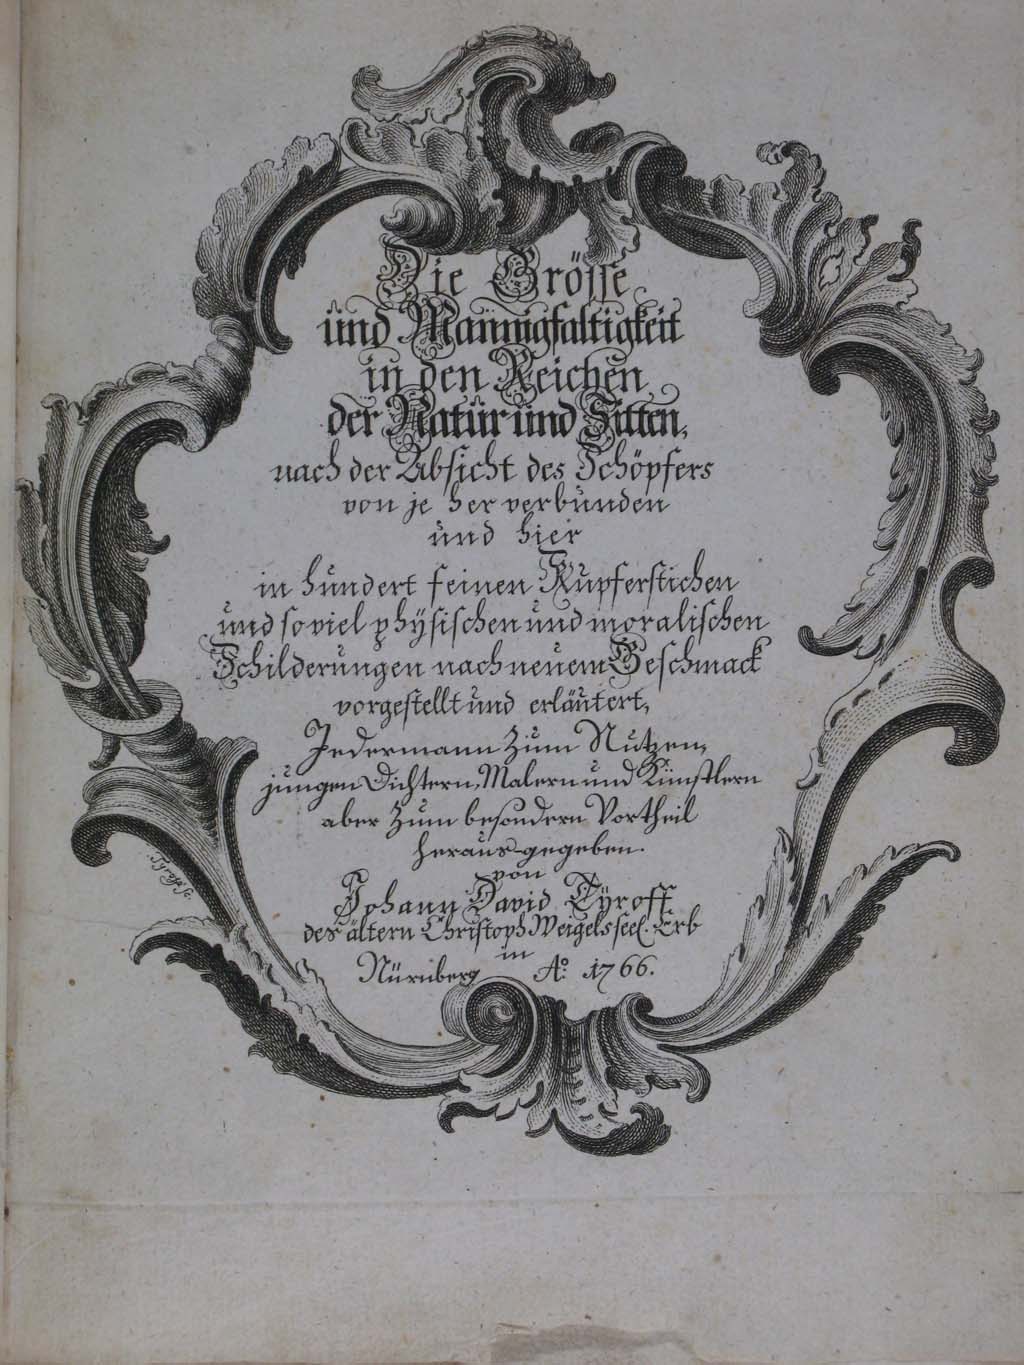 Die Grösse
und Mannigfaltigkeit
in den Reichen
der Natur und Sitten,
nach der Absicht des Schöpfers
von je her verbunden
und hier
in hundert feinen Kupferstichen
und so viel physischen und moralischen
Schilderungen nach neuem Geschmack
vorgestellt und erläutert,
Jedermann zum Nutzen,
jungen Dichtern, Malern und Künstlern
aber zum besondern Vortheil
heraus gegeben.
von
Johann David Tyroff
des ältern Christoph Weigels seel. Erb
in
Nürnberg Ao. 1766.